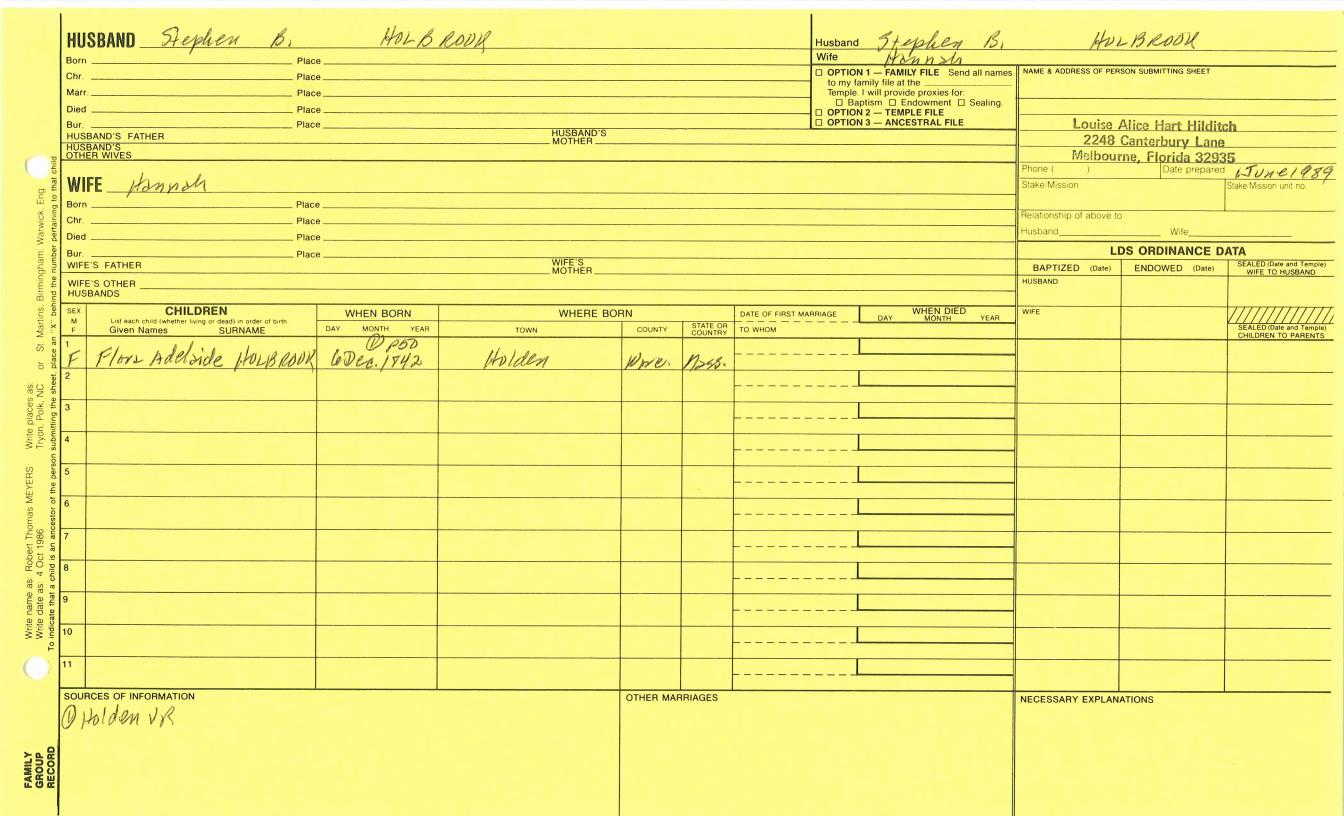 HUSBAND Stephen B. HOLBROOK
Born Place
Chr. Place
Marr. Place
Died Place
Bur. Place
HUSBAND'S FATHER HUSBAND'S MOTHER
HUSBAND'S OTHER WIVES
Husband Stephen B. HOLBROOK
Wife Hannah
☐ OPTION 1 — FAMILY FILE Send all names
to my family file at the
Temple. I will provide proxies for:
☐ Baptism ☐ Endowment ☐ Sealing.
☐ OPTION 2 — TEMPLE FILE
☐ OPTION 3 — ANCESTRAL FILE
NAME & ADDRESS OF PERSON SUBMITTING SHEET
Louise Alice Hart Hilditch
2248 Canterbury Lane
Melbourne, Florida 32935
Phone ( ) Date prepared June 1989
Stake Mission Stake Mission unit no.
Relationship of above to
Husband Wife
WIFE Hannah
Born Place
Chr. Place
Died Place
Bur. Place
WIFE'S FATHER WIFE'S MOTHER
WIFE'S OTHER HUSBANDS
LDS ORDINANCE DATA
BAPTIZED (Date) ENDOWED (Date) SEALED (Date and Temple) WIFE TO HUSBAND
HUSBAND
WIFE
SEALED (Date and Temple) CHILDREN TO PARENTS
SEX M F
CHILDREN
List each child (whether living or dead) in order of birth
Given Names SURNAME
WHEN BORN
DAY MONTH YEAR
WHERE BORN
TOWN COUNTY STATE OR COUNTRY
DATE OF FIRST MARRIAGE
TO WHOM
WHEN DIED
DAY MONTH YEAR
① p50
1 F Flora Adelaide HOLBROOK 6 Dec. 1842 Holden Worc. Mass.
2
3
4
5
6
7
8
9
10
11
SOURCES OF INFORMATION
① Holden VR
OTHER MARRIAGES
NECESSARY EXPLANATIONS
Write name as: Robert Thomas MEYERS Write places as: Tryon, Polk, NC or St. Martins, Birmingham, Warwick, Eng.
Write date as: 4 Oct 1986
To indicate that a child is an ancestor of the person submitting the sheet, place an "X" behind the number pertaining to that child
FAMILY GROUP RECORD